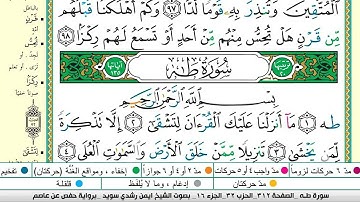 ٱلْمُتَّقِينَ وَتُنذِرَ بِهِۦ قَوْمًا لُّدًّا ٩٧ وَكَمْ أَهْلَكْنَا قَبْلَهُم
مِّن قَرْنٍ هَلْ تُحِسُّ مِنْهُم مِّنْ أَحَدٍ أَوْ تَسْمَعُ لَهُمْ رِكْزًۢا ٩٨
سُورَةُ طٰهٰ
بِسْمِ ٱللَّهِ ٱلرَّحْمَٰنِ ٱلرَّحِيمِ
طه ١ مَآ أَنزَلْنَا عَلَيْكَ ٱلْقُرْءَانَ لِتَشْقَىٰٓ ٢ إِلَّا تَذْكِرَةً
لِّمَن يَخْشَىٰ ٣ تَنزِيلًا مِّمَّنْ خَلَقَ ٱلْأَرْضَ وَٱلسَّمَٰوَٰتِ ٱلْعُلَى ٤
مدّ ٦ حركات لزوماً مدّ ٢ أو ٤ أو ٦ جوازاً إخفاء، ومواقع الغُنَّة (حركتان) تفخيم
مدّ حركتان إدغام، وما لا يُلفَظ قلقلة
سورة طـه _الصفحة ٣١٢ _الجزء ١٦_ بصوت الشيخ ايمن رشدي سويد _برواية حفص عن عاصم